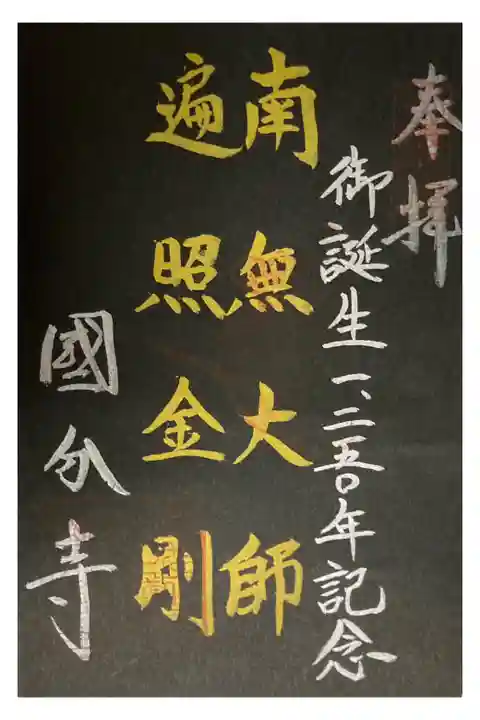 奉拝
御誕生一、二五〇年記念
南無大師
遍照金剛
國分寺